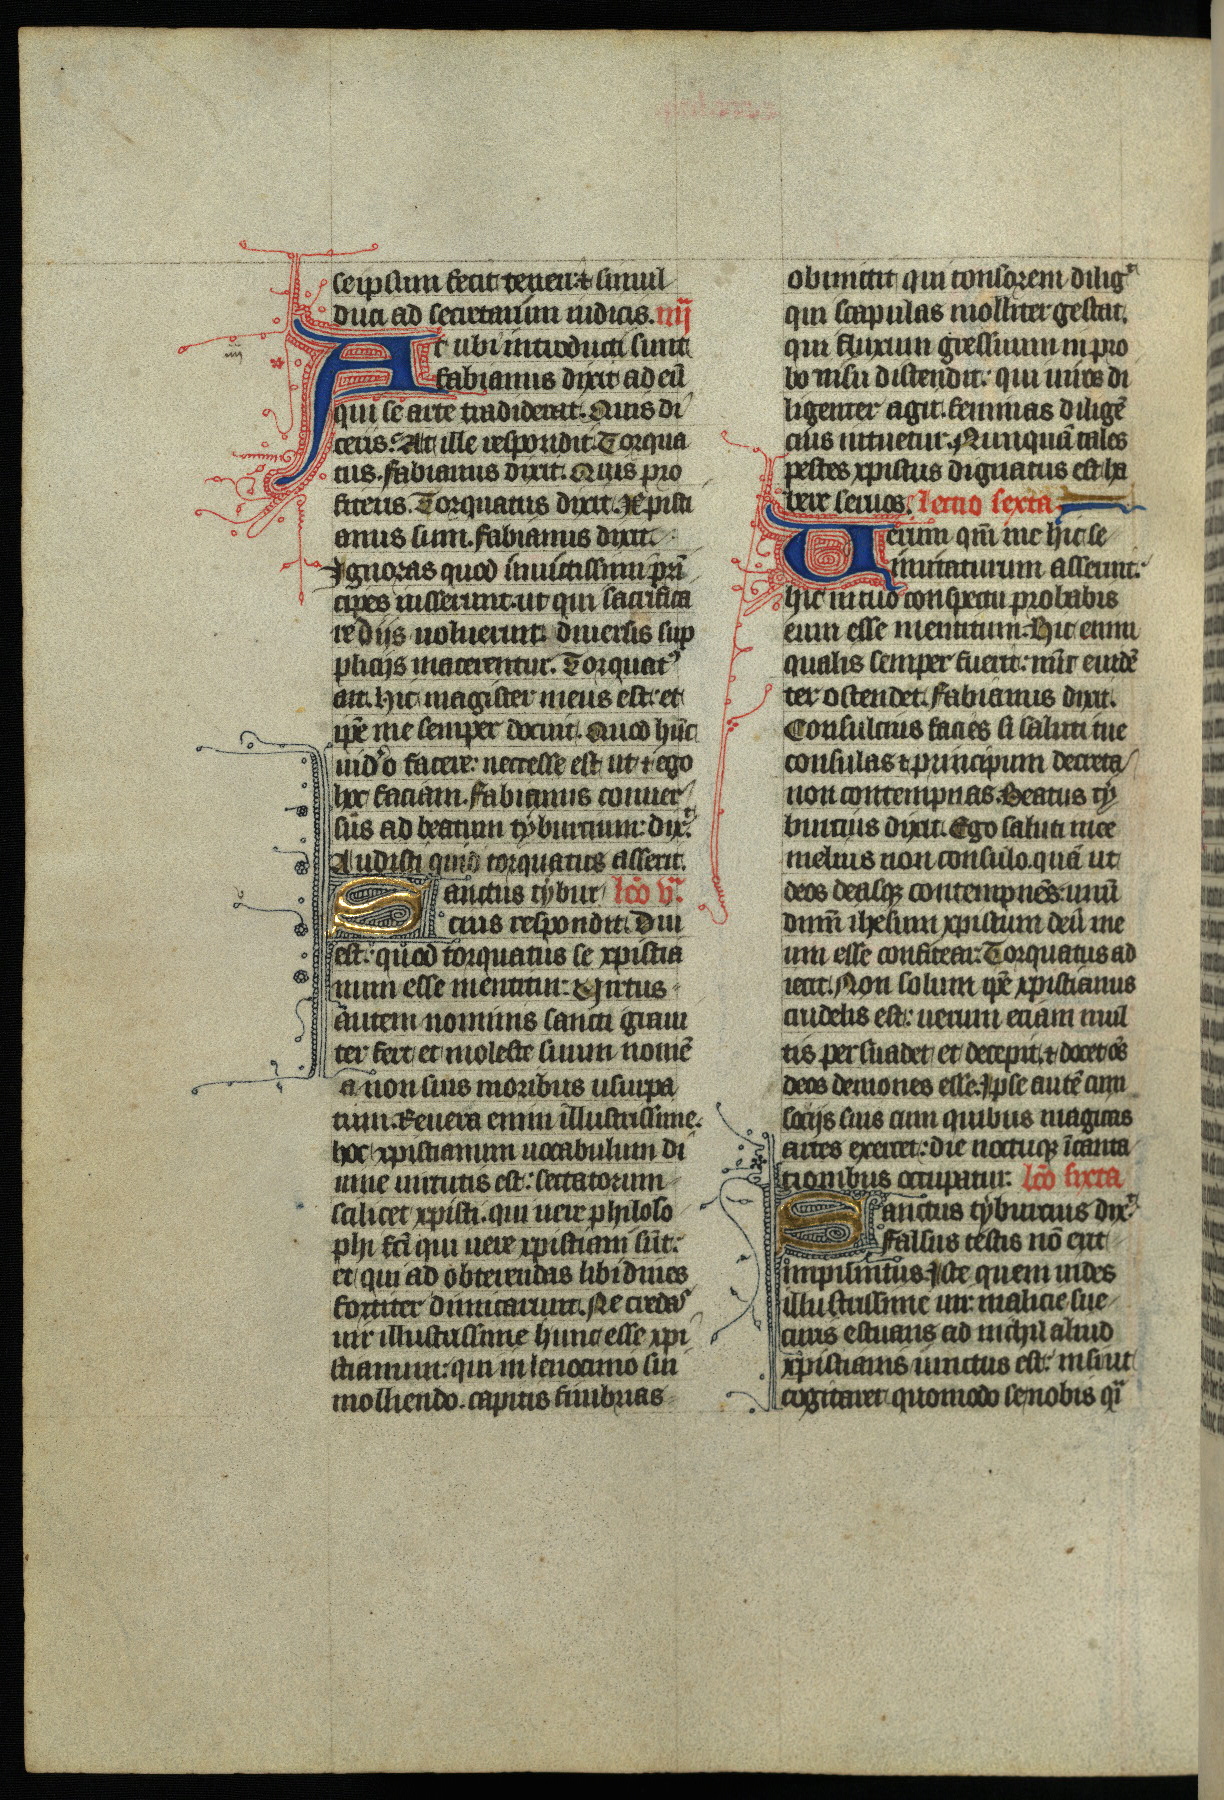 seipsum fecit teneri: & simul
duci ad secretarium iudicis. iiij
At ubi introducti sunt
fabianus dixit ad eū
qui se arte tradiderat. Quis di
ceris: At ille respondit. Torqua
tus. fabianus dixit. Quis pro
fiteris. Torquatus dixit. Xpisti
anus sum. fabianus dixit.
Ignoras quod inuictissimi pri
cipes iusserunt. ut qui sacrifica
re dijs noluerint. diuersis sup
plicijs macerentur. Torquatꝰ
ait. Hic magister meus est: et
ip̄e me semper docuit. Quod hūc
uidero facere: necesse est ut & ego
hoc faciam. fabianus conuer
sus ad beatum tyburtium: dix̄.
Audisti quid torquatus asserit.
Sanctus tybur lc̄o v.ͣ
cius respondit. Diu
est: quod torquatus se xpistia
num esse mentitur: Uirtus
autem nominis sancti graui
ter fert et moleste suum nomē
a non suis moribus usurpa
tum. Reuera enim illustrissime.
hoc xpistianum uocabulum di
uine uirtutis est: sectatorum
scilicet xpisti. qui uere philoso
phi sc̄i qui uere xpistiani sūt:
et qui ad obterendas libidines
fortiter dimicarunt. Ne credas
uir illustrissime hunc esse xpi
stianum: qui in lenocinio sui
molliendo. capitis fimbrias
obmittit qui tonsorem dilig̃
qui scapulas molliter gestat.
qui fluxum gressuum in pro
bo nisu distendit: qui uiros di
ligenter agit. feminas diligē
cius intuetur. Nunquā tales
pestes xpistus dignatus est ha
bere seruos. lectio sexta
Uerum qm̄ me hic se
imitaturum asserit:
hic in tuo conspectu probabis
eum esse mentitum. Hic enim
qualis semper fuerit: nūc euidē
ter ostendet. fabianus dixit.
Consultius facies si saluti tue
consulas & principum decreta
non contempnas. Beatus ty
burcius dixit. Ego saluti mee
melius non consulo. quā ut
deos deasqꝫ contempnēs: unū
dnm̄ ihesum xpistum deū me
um esse confitear: Torquatus ad
iecit. Non solum ip̄e xpistianus
crudelis est: uerum etiam mul
tis persuadet et decepit. & docet oēs
deos demones esse. Ipse autē cum
socijs suis cum quibus magicas
artes exercet: die noctuqꝫ īcanta
tionibus occupatur: lc̄o sixta
Sanctus tyburcius dix̄.
Falsus testis nō erit
impunitus: Iste quem uides
illustrissime uir malicie sue
curis estuans ad nichil aliud
xpistianis iunctus est: nisi ut
cogitaret quomodo se nobis q̄